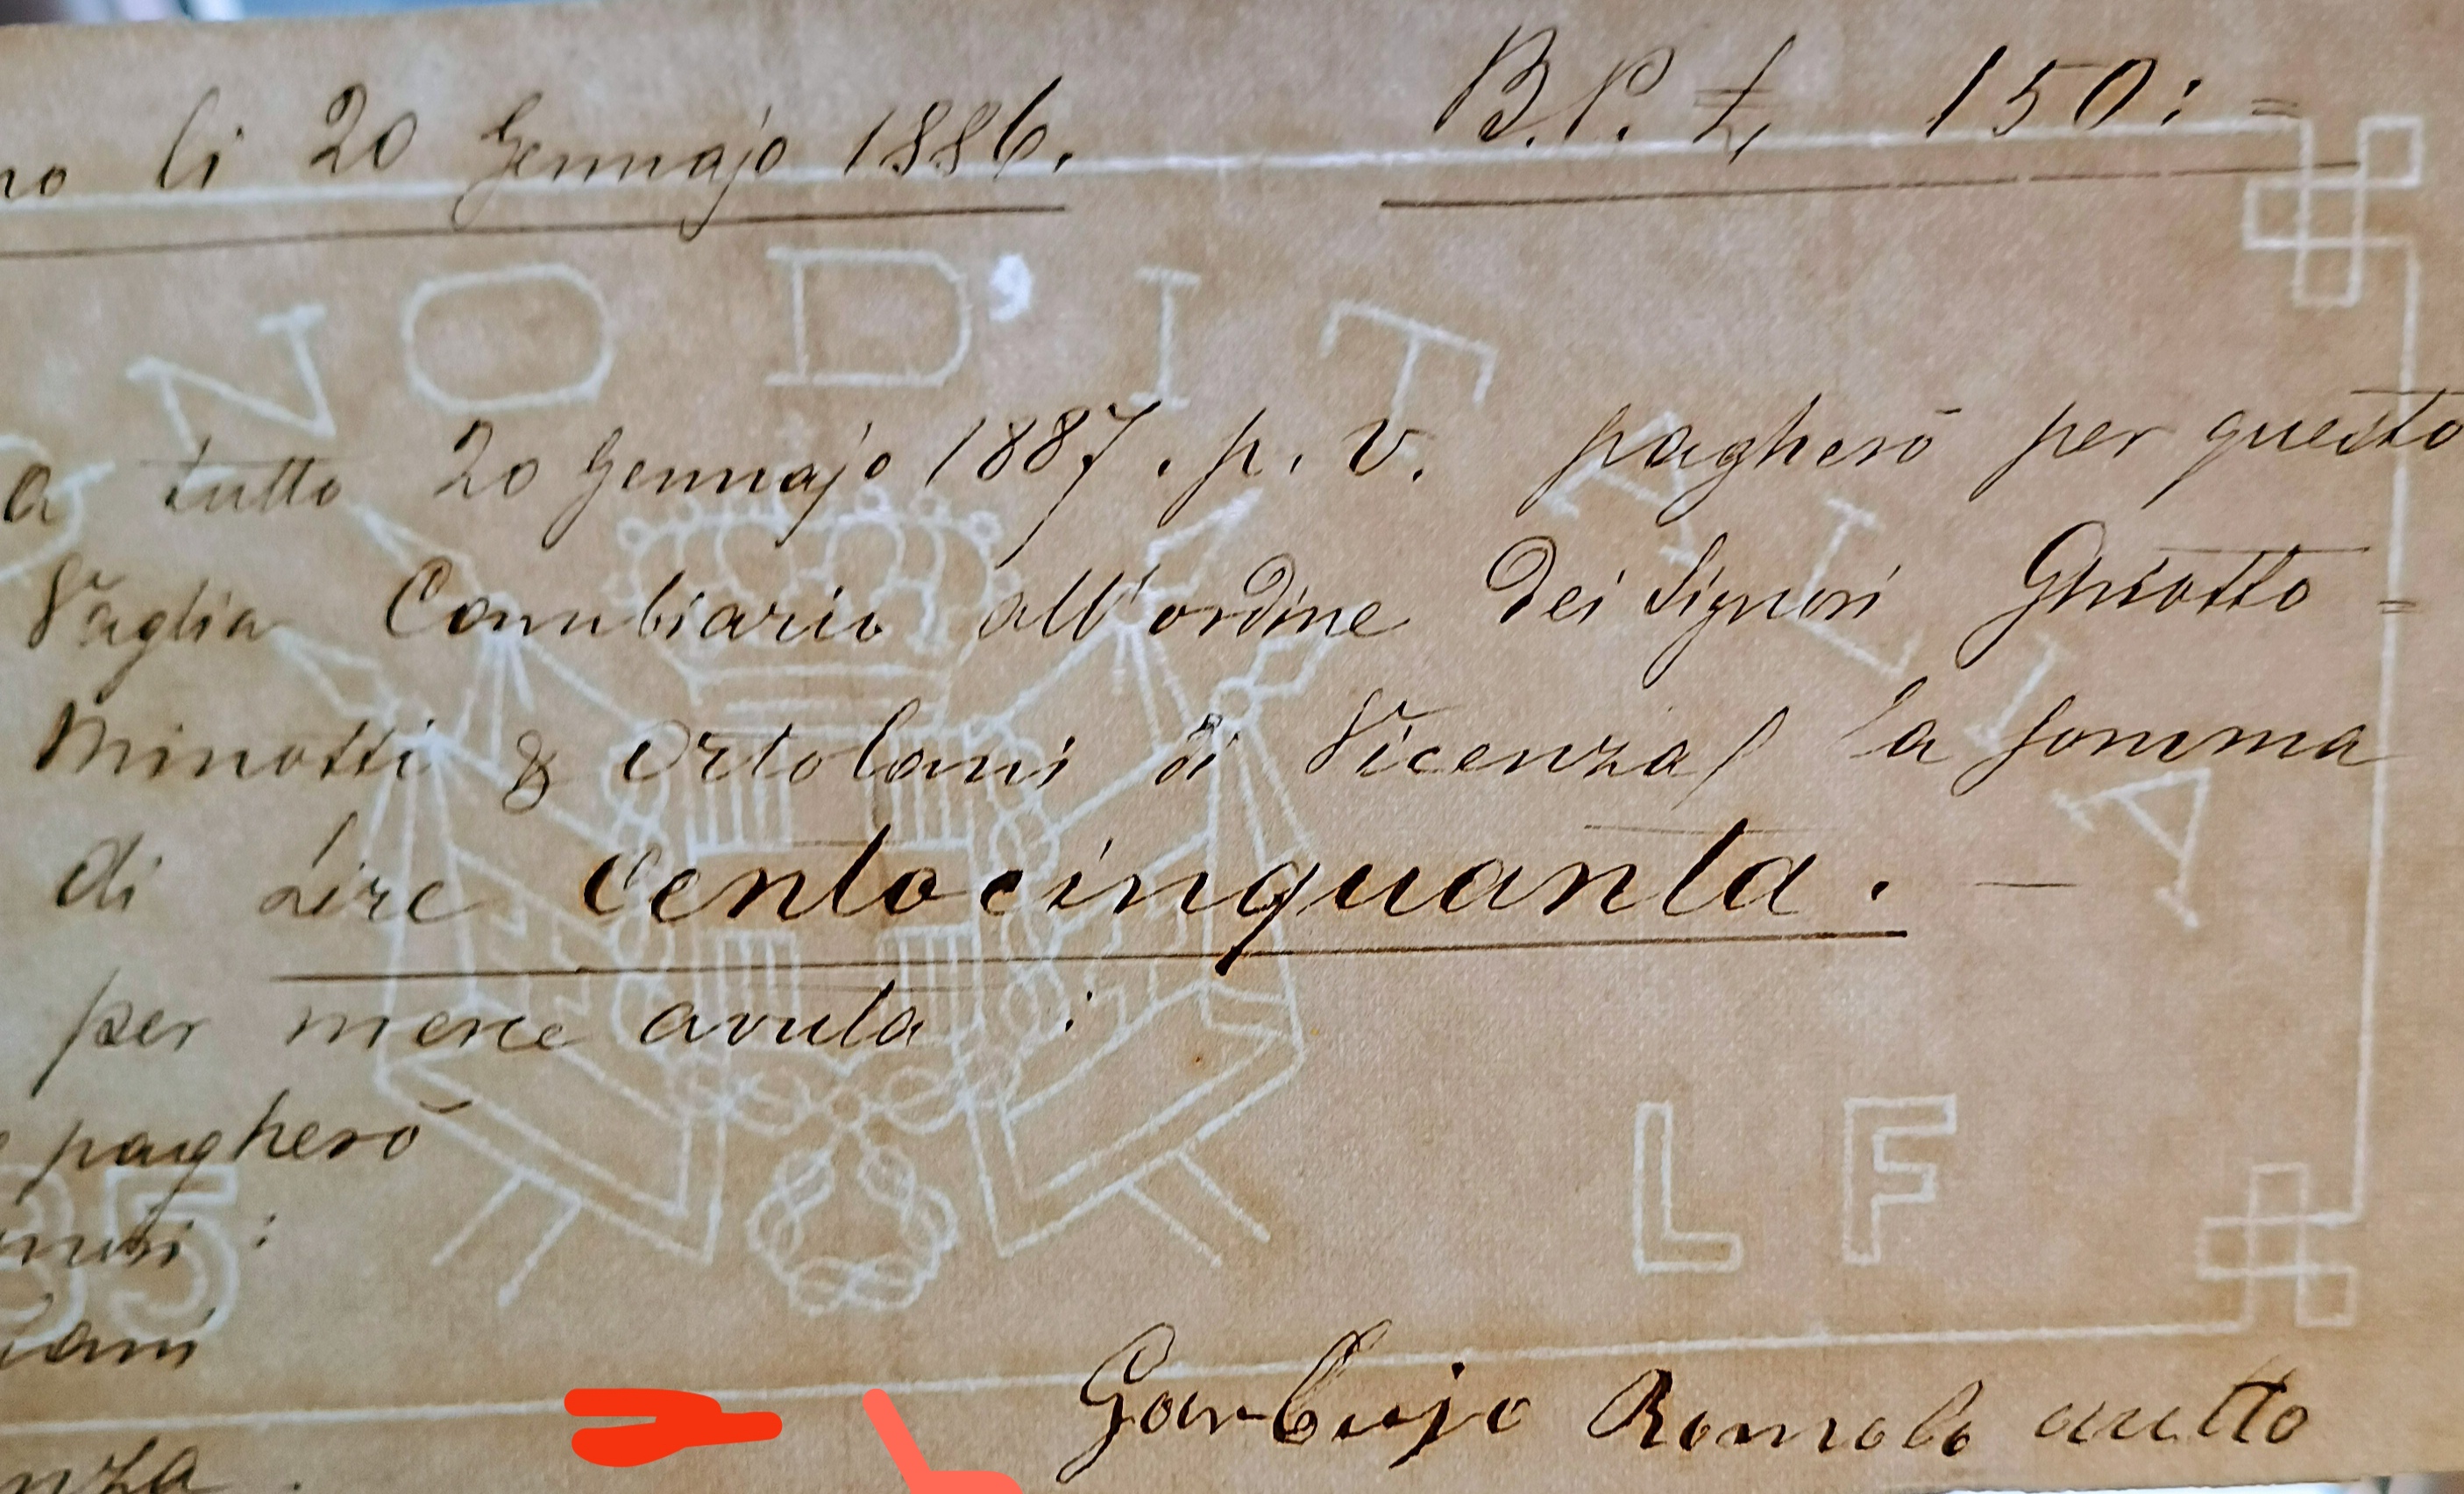 no li 20 Gennajo 1886. B.P. £ 150: =
NO D'ITALIA
a tutto 20 Gennajo 1887. p. v. pagherò per questo
Vaglia Cambiario all'ordine dei Signori Ghiotto =
Minotti & Ortolani di Vicenza / la somma
di Lire centocinquanta. —
per merce avuta :
pagherò
LF
35
:
lani
Garbujo Romolo accetto
nza .